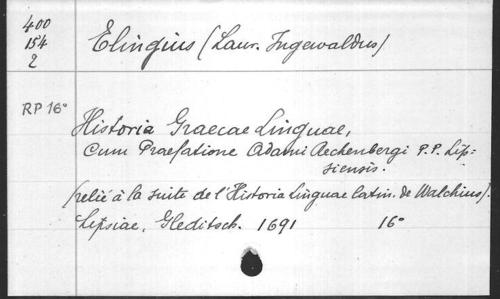 400
154
2
Elingius (Laur. Ingewaldus)
RP 16°
Historia Graecae Linguae,
Cum Praefatione Adami Rechenbergi P.P. Lip=
siensis.
(relié à la suite de l'Historia Linguae latin. de Walchius).
Lipsiae, Gleditsch. 1691 16°